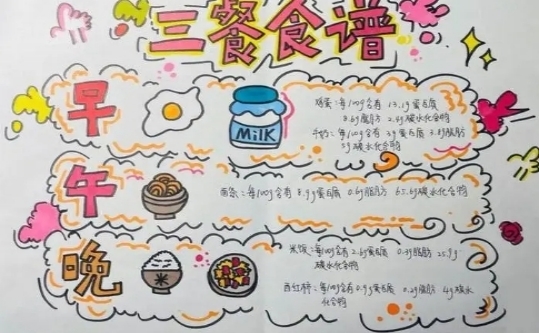 三餐食谱
早
MiLK
鸡蛋：每100g含有 13.1g蛋白质
8.6g脂肪 2.4g碳水化合物
牛奶：每100g含有 3g蛋白质 3.8g脂肪
5g碳水化合物
午
面条：每100g含有 8.9g蛋白质 0.6g脂肪 65.6g碳水化合物
晚
米
米饭：每100g含有 2.6g蛋白质 0.3g脂肪 25.9g
碳水化合物
西红柿：每100g含有0.9g蛋白质 0.2g脂肪 4g碳水
化合物